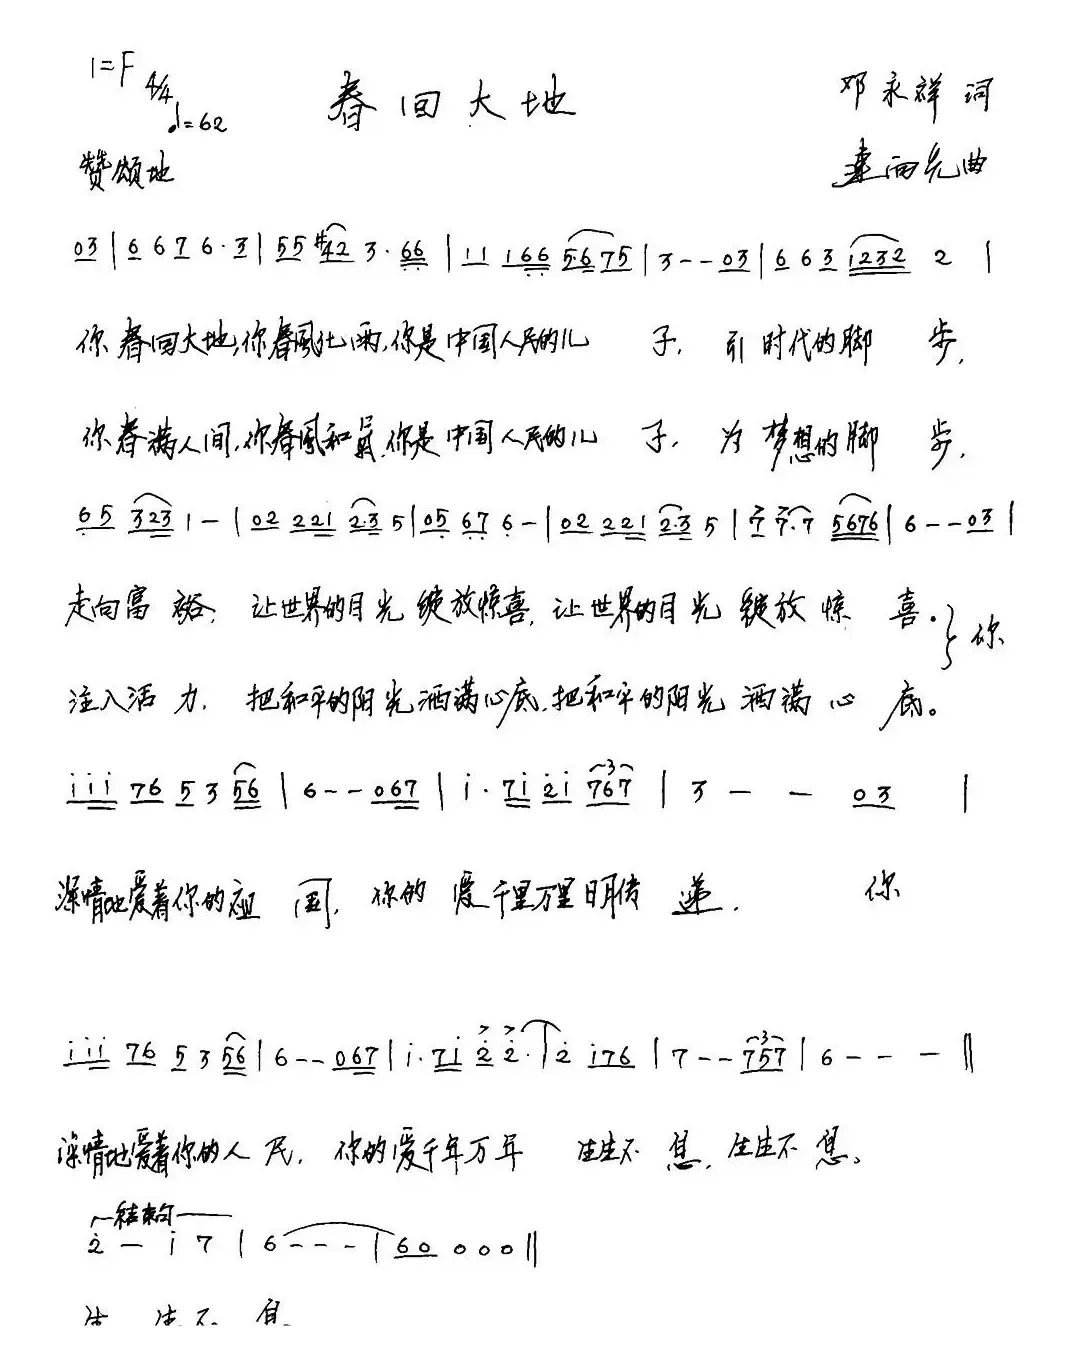 1=F 4/4 ♩=62
春回大地
邓永祥 词
雨先曲
赞颂地
03 | 6 6 7 6· 3 | 55 #42 3· 66 | 11 166 5·675 | 3 - - 03 | 6 6 3 1232 2 |
你春回大地,你春风化雨,你是中国人民的儿 子, 引时代的脚 步,
你春满人间,你春风和易,你是中国人民的儿 子, 为梦想的脚 步,
65 323 1 - | 02 221 2·3 5 | 05 67 6 - | 02 221 2·3 5 | 7 7·7 5676 | 6 - - 03 |
走向富 裕; 让世界的目光绽放惊喜,让世界的目光 绽放 惊 喜。} 你
注入活 力, 把和平的阳光洒满心底,把和平的阳光 洒满 心 底。
i i i 76 5 3 56 | 6 - - 067 | i· 7i 2i 767 | 3 - - 03 |
深情地爱着你的祖 国, 你的 爱千里万里 传 递, 你
i i i 76 5 3 56 | 6 - - 067 | i· 7i 2 2· | 2 i76 | 7 - - 757 | 6 - - - ‖
深情地爱着你的人 民, 你的爱千年万年 生生不 息, 生生不 息。
结束句
2 - i 7 | 6 - - - | 60 0 0 0 ‖
生 生不 息。